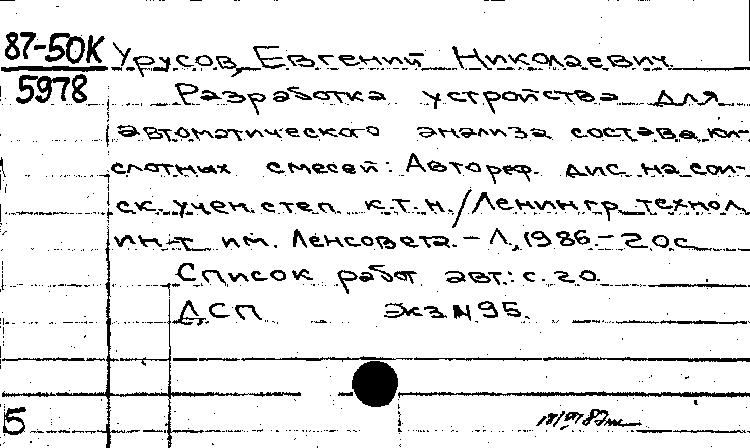 87-50К Урусов, Евгений Николаевич
5978 Разработка устройства для
автоматического анализа состава ки-
слотных смесей: Автореф. дис. на сои-
ск. учен. степ. к.т.н./Ленингр. технол.
ин-т им. Ленсовета. - Л, 1986. - 20с
Список работ авт.: с. 20
ДСП экз № 95.
5